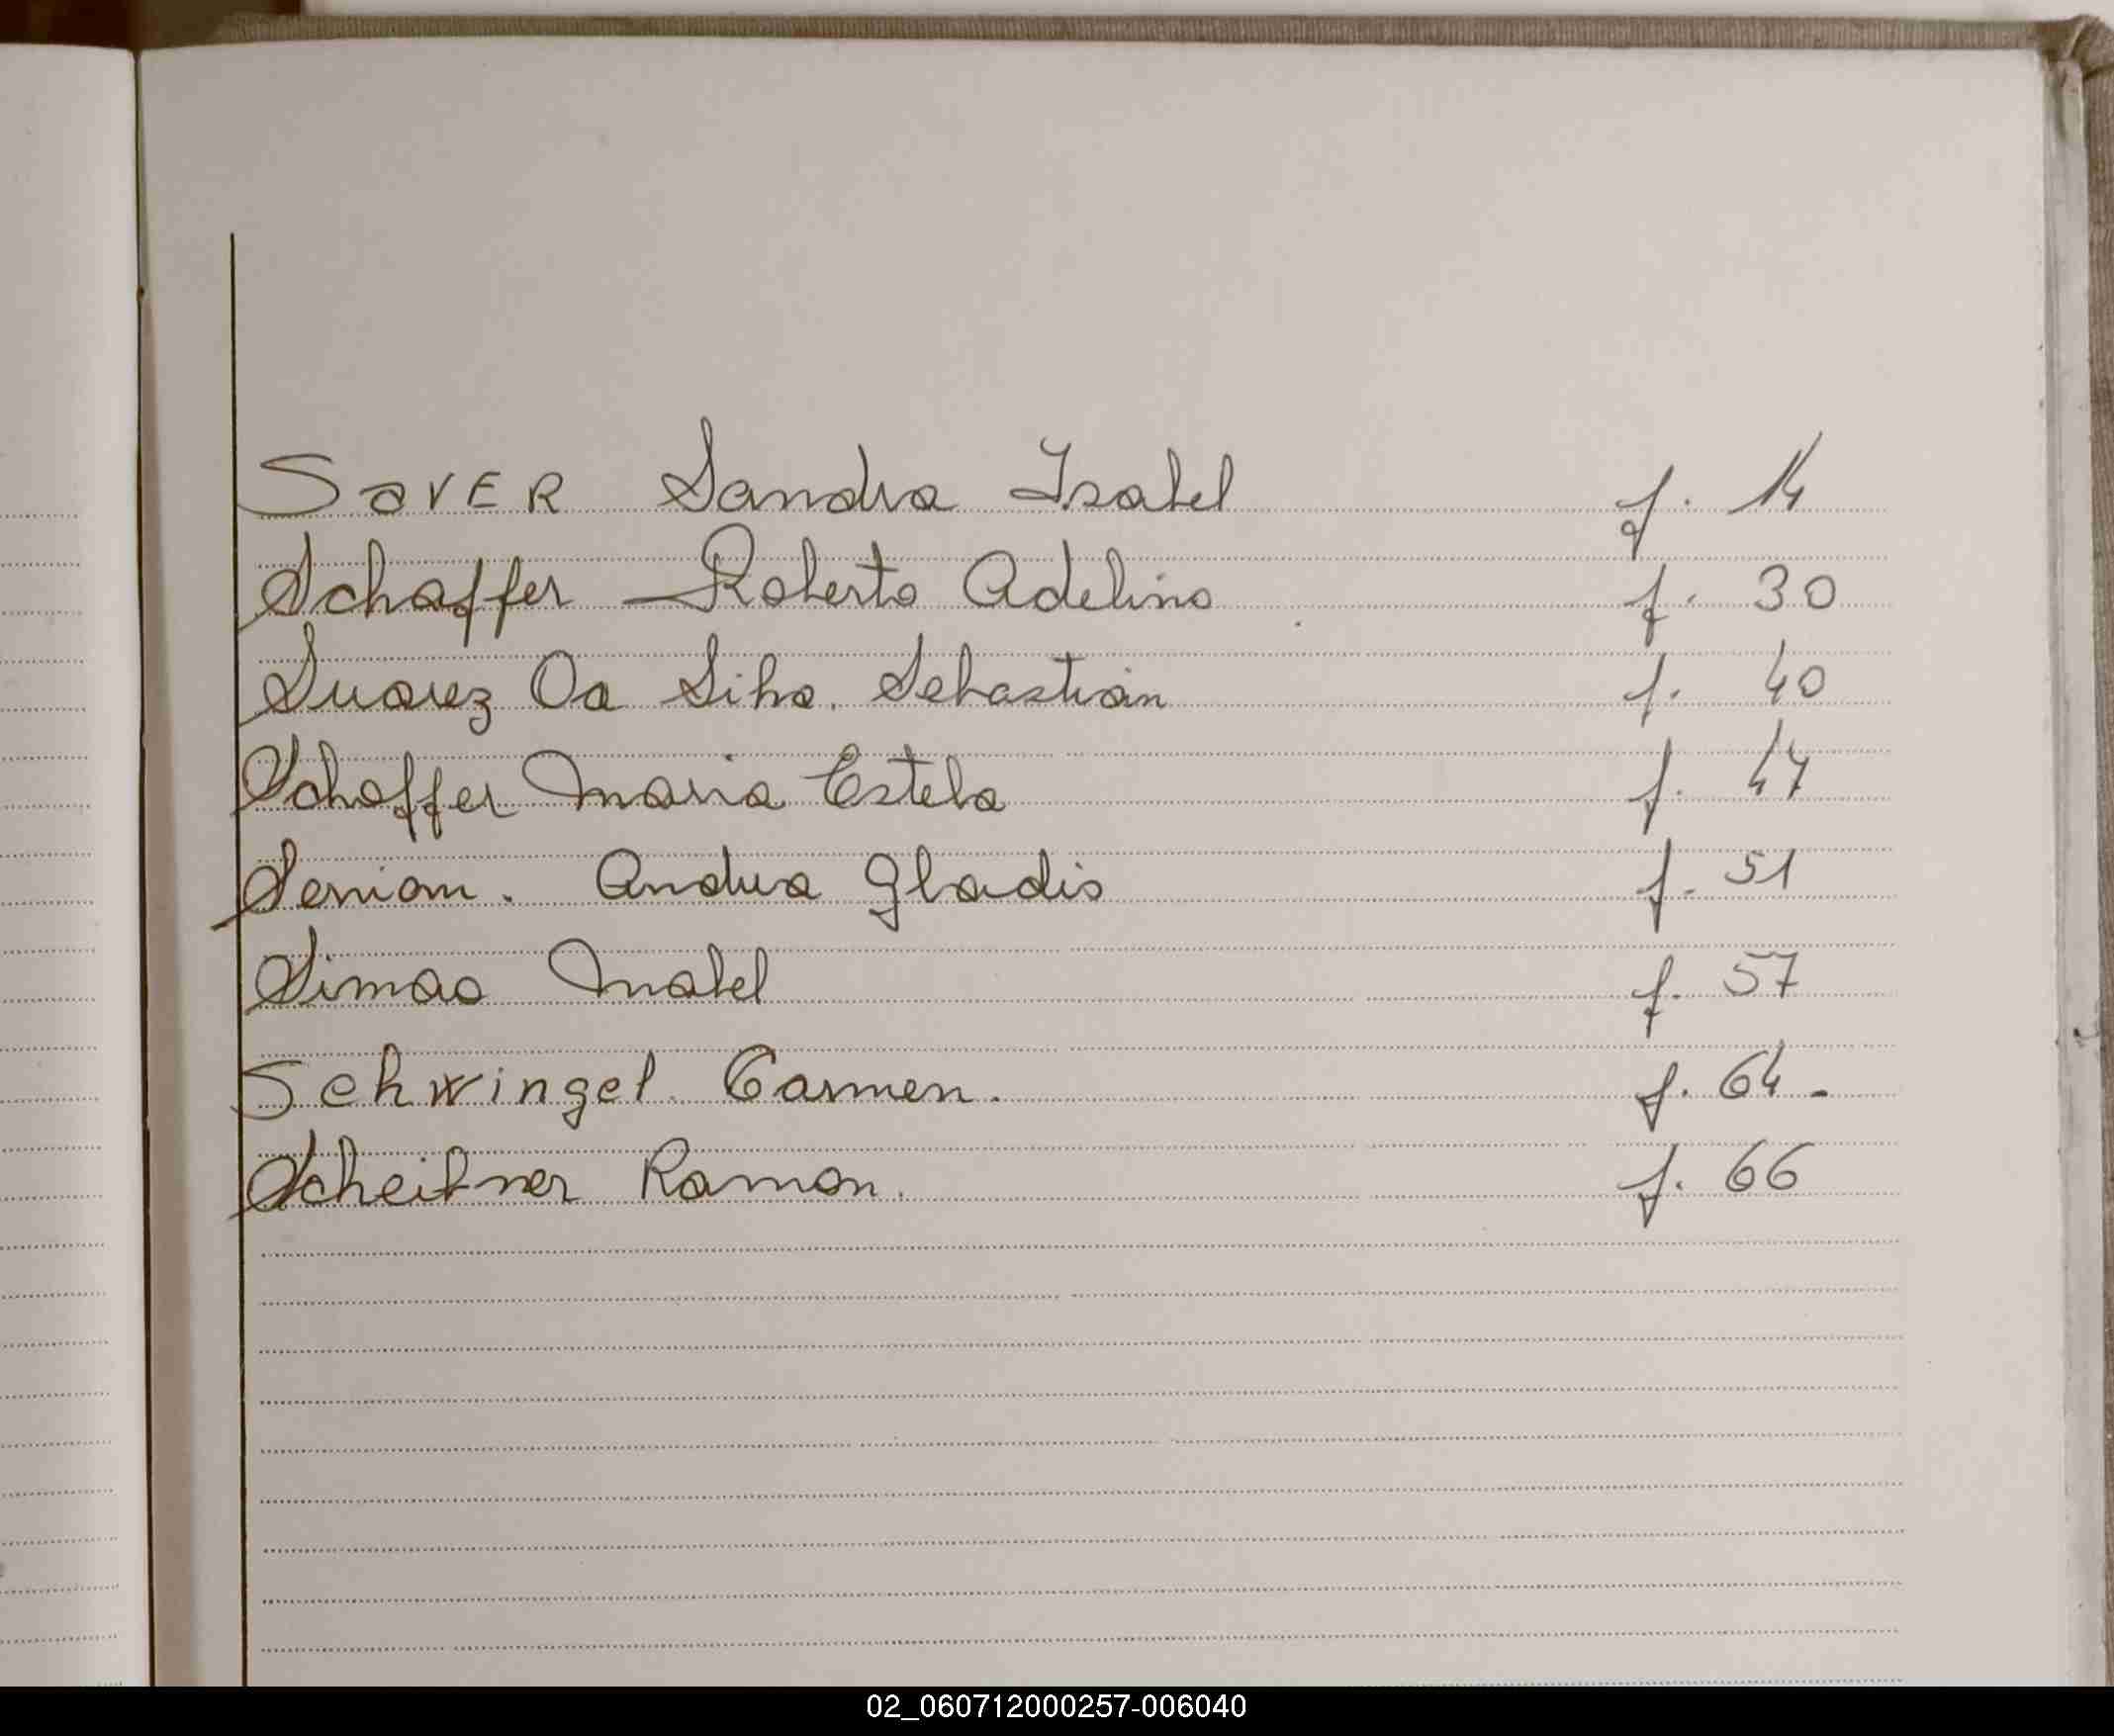 SaVER Sandra Isabel f. 14
Schaffer Roberto Adelino f. 30
Suarez Da Silva. Sebastián f. 40
Schaffer Maria Estela f. 47
Seniam. Andrea Gladis f. 51
Simao Mabel f. 57
Schwingel. Carmen. f. 64-
Scheibner Ramon. f. 66
02_060712000257-006040